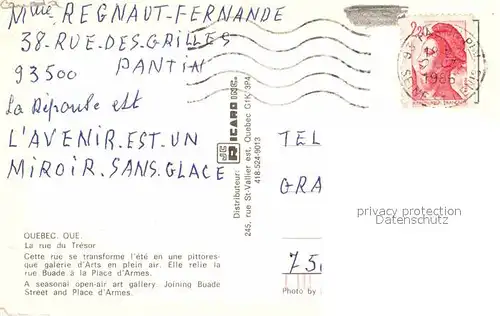 Mme REGNAUT-FERNANDE
38-RUE-DES-GRILLES
93500 PANTIN
La Réponse est
L'AVENIR.EST.UN
MIROIR.SANS.GLACE
QUEBEC. QUE.
La rue du Trésor
Cette rue se transforme l'été en une pittores-
que galerie d'Arts en plein air. Elle relie la
rue Buade à la Place d'Armes.
A seasonal open-air art gallery. Joining Buade
Street and Place d'Armes.
Distributeur: RICARD INC.
245, rue St-Vallier est, Quebec G1K 3P4
418-524-9013
2,20
1986
SEINE
TEL
GRA
75
Photo by
privacy protection
Datenschutz